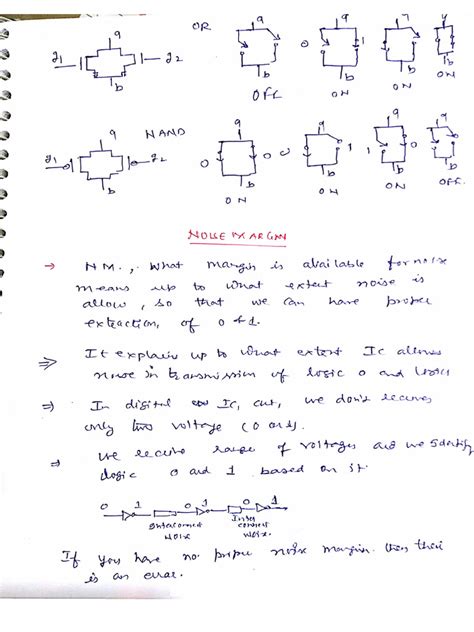 a OR a a a a
g1 g2 0 1
b b b b b
OFF ON ON ON
a NAND a a a a
g1 g2 0 0 0 1 1 0
b b b b b
ON ON ON OFF
NOISE MARGIN
→ NM., What margin is available for noise
means up to what extent noise is
allow, so that we can have proper
extraction, of 0 & 1.
⇒ It explain up to what extent Ic allows
noise in transmission of logic 0 and logic 1
⇒ In digital Ic, ckt, we don't receives
only two voltage (0 and 1).
⇒ we receive range of voltages and we identify
logic 0 and 1 based on it.
0 1 0 1 0 1
Interconnect Inter
Noise connect
Noise
If you have no proper noise margin then their
is an error.